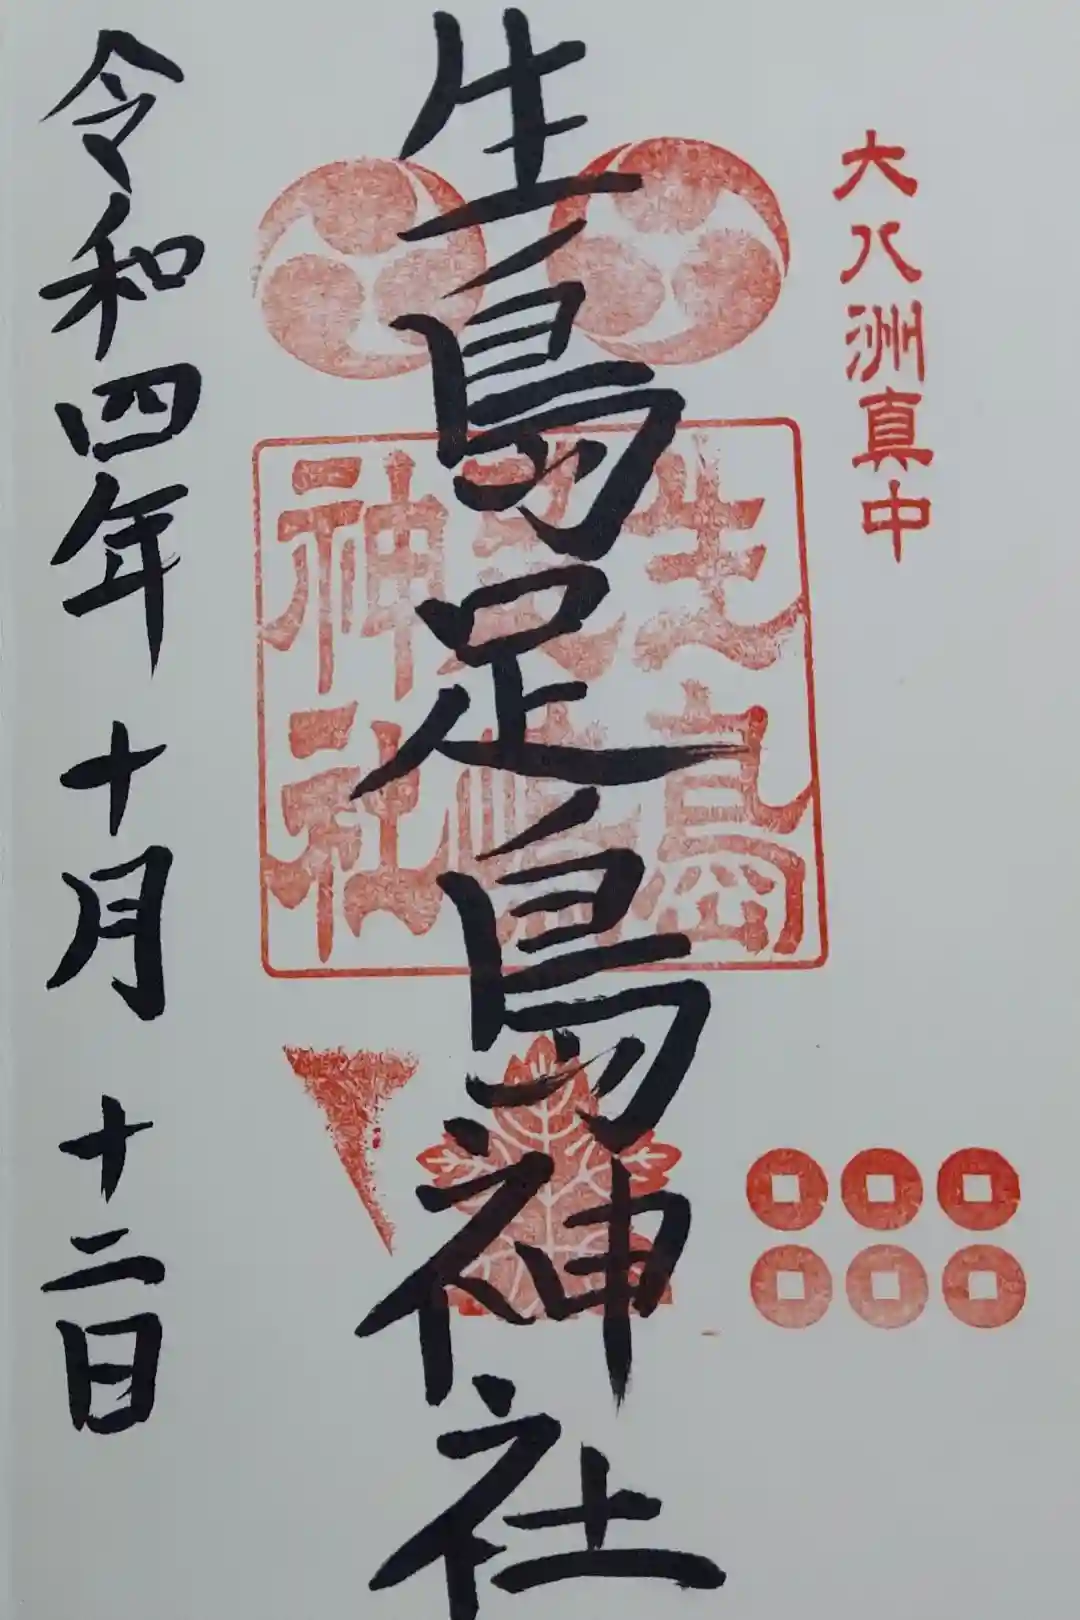 大八洲真中
生島足島神社
生島
足
神社
令和四年十月十二日